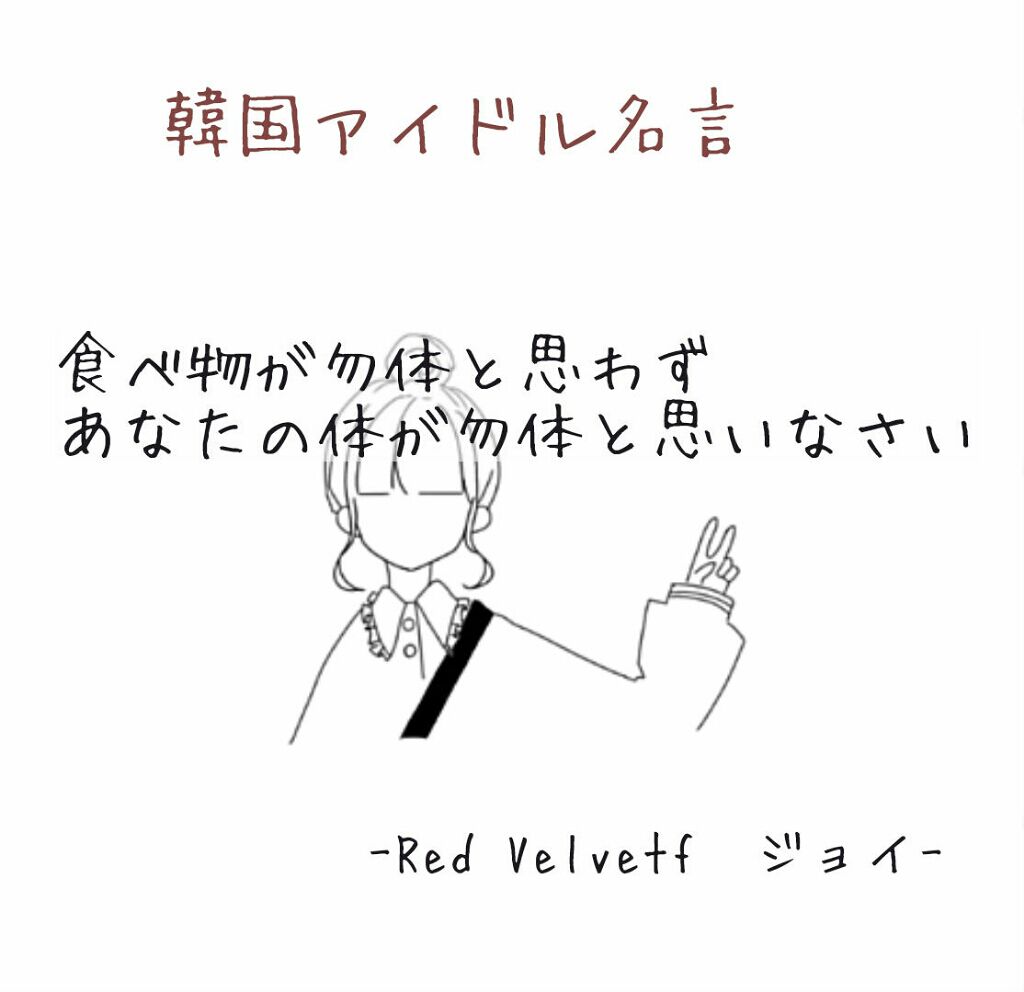 韓国アイドル名言
食べ物が勿体と思わず
あなたの体が勿体と思いなさい
-Red Velvetf ジョイ-